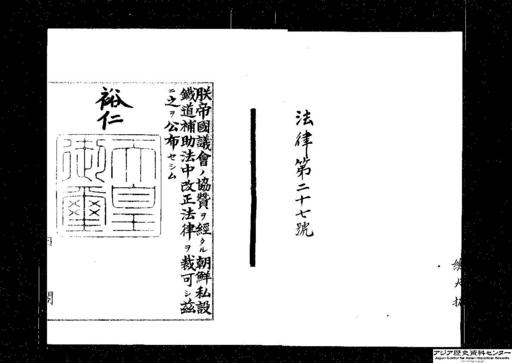 法律第二十七號
朕帝國議會ノ協贊ヲ經タル朝鮮私設
鐵道補助法中改正法律ヲ裁可シ茲
ニ之ヲ公布セシム
裕仁
天皇
御璽
アジア歴史資料センター
Japan Center for Asian Historical Records